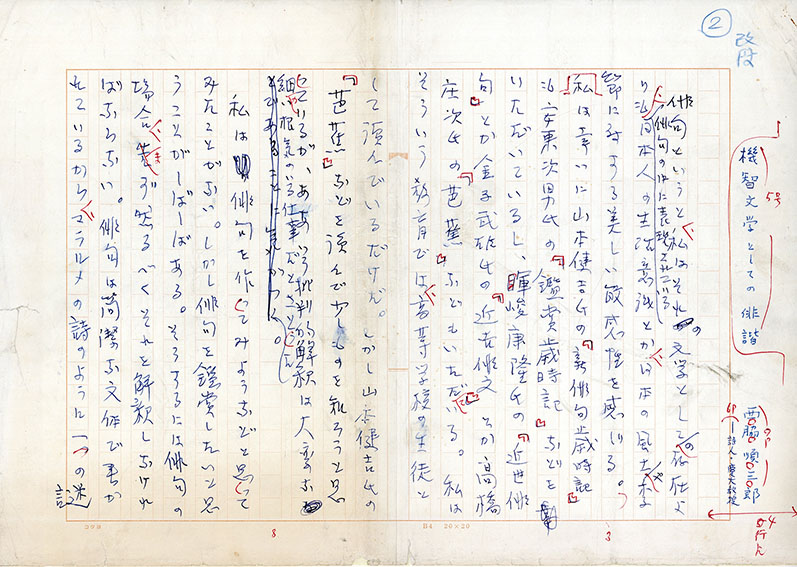 ②
改段
機智文学としての俳諧
5号
西脇順三郎
詩人・慶大教授
俳句というと私はそれの文学としての存在よ
り俳句の中に表現されている日本人の生活意識とか日本の風土季
節に対する美しい敏感性を感じる。
私は幸いに山本健吉氏の『新俳句歳時記』
安東次男氏の『鑑賞歳時記』などを
いただいているし、暉峻康隆氏の『近世俳
句』とか金子武雄氏の『近世俳文』とか高橋
庄次氏の『芭蕉』などもいただいている。私は
そういう教育では高等学校の生徒と
して読んでいるだけだ。しかし山本健吉氏の
『芭蕉』などを読んで少しものを知ろうと思
っているが、ああいう批判的解釈は大変な
細かい根気のいる仕事だと
私は俳句を作ってみようなどと思って
みたことがない。しかし俳句を鑑賞したいと思
うことがしばしばある。そうするには俳句の
場合まず然るべくそれを解説しなけれ
ばならない。俳句は簡潔な文体で書か
れているからマラルメの詩のように一つの謎
コクヨ
8
B4 20×20
3